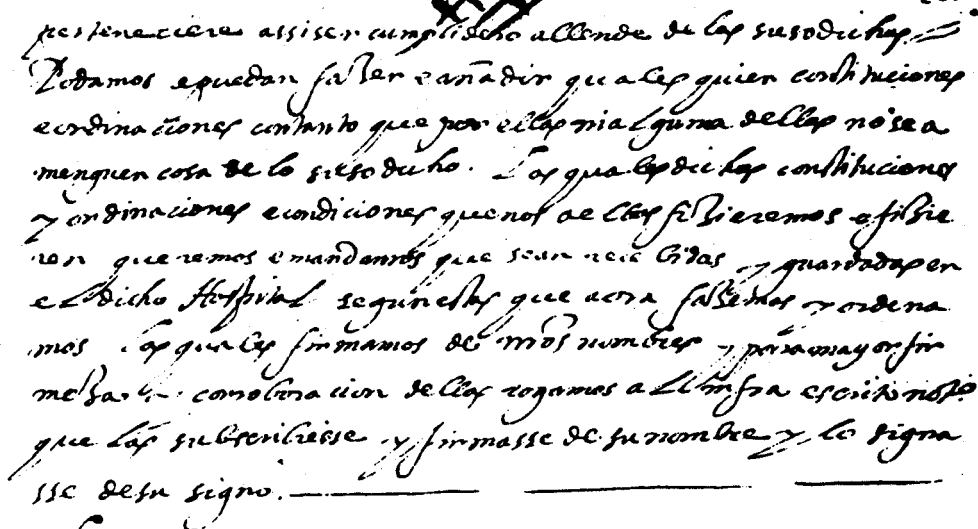 perteneciere assi ser cumplidero allende de las susodichas
Podamos e puedan fazer e añadir quales quier constituciones
e ordinaciones con tanto que por ellas ni alguna dellas no sea
menguer cosa de lo susodicho. Las quales dichas constituciones
y ordinaciones e condiciones que nos o ellos fizieremos o fizie
ren queremos e mandamos que sean recebidas y guardadas en
el dicho Hospital segun estas que aora fazemos y ordena
mos las quales firmamos de nros nombres y para mayor fir
meza corroboracion dellas rogamos al infra escrito not.º
que las subscriviesse y firmasse de su nombre y lo signa
sse de su signo.